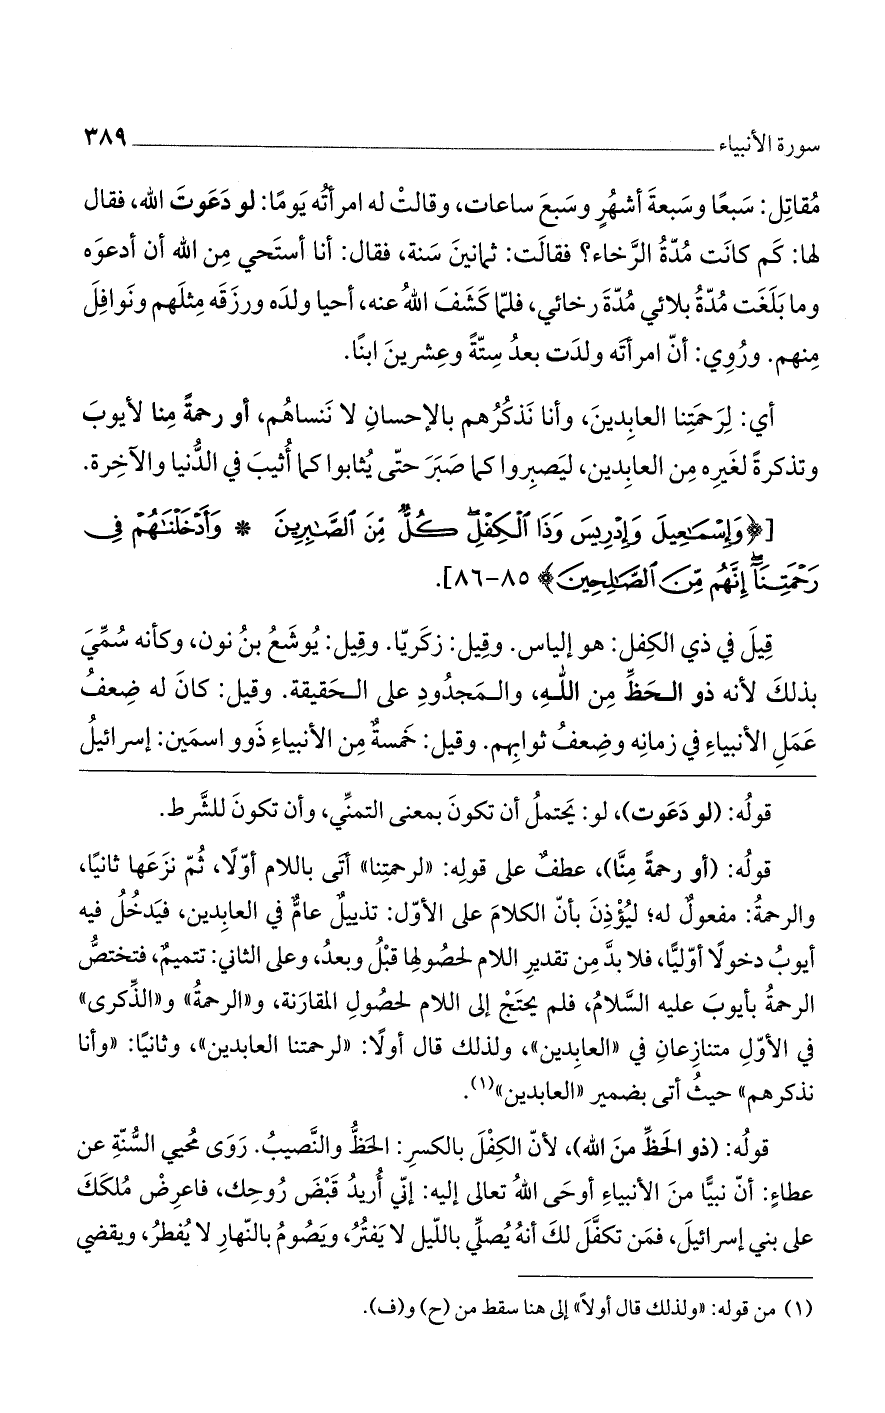 سورة الأنبياء ٣٨٩
مُقاتِل: سَبعًا وسَبعةَ أشهُرٍ وسَبعَ ساعات، وقالتْ له امرأتُه يَومًا: لو دَعَوتَ الله، فقال
لها: كَم كانَت مُدّةُ الرَّخاء؟ فقالَت: ثمانينَ سَنة، فقال: أنا أستَحي مِن الله أن أدعوَه
وما بَلَغَت مُدّةُ بلائي مُدّةَ رخائي، فلمّا كَشَفَ اللهُ عنه، أحيا ولدَه ورزَقَه مِثلَهم ونَوافِلَ
مِنهم. ورُوِي: أنّ امرأتَه ولدَت بعدُ سِتّةً وعِشرينَ ابنًا.
أي: لِرَحمَتِنا العابِدينَ، وأنا نَذكُرُهم بالإحسانِ لا نَنساهُم، أو رحمةً مِنا لأيوبَ
وتذكرةً لغَيرِه مِن العابِدين، ليَصبِروا كما صَبَرَ حتّى يُثابوا كما أُثيبَ في الدُّنيا والآخِرة.
[﴿وَإِسْمَٰعِيلَ وَإِدْرِيسَ وَذَا ٱلْكِفْلِ ۖ كُلٌّ مِّنَ ٱلصَّٰبِرِينَ * وَأَدْخَلْنَٰهُمْ فِى
رَحْمَتِنَآ ۖ إِنَّهُم مِّنَ ٱلصَّٰلِحِينَ﴾ ٨٥-٨٦].
قِيلَ في ذي الكِفل: هو إلياس. وقِيل: زكَريّا. وقِيل: يُوشَعُ بنُ نون، وكأنه سُمِّيَ
بذلكَ لأنه ذو الحَظِّ مِن اللهِ، والمَجدُودِ على الحَقيقة. وقيل: كانَ له ضِعفُ
عَمَلِ الأنبياءِ في زمانِه وضِعفُ ثوابِهم. وقيل: خَمسةٌ مِن الأنبياءِ ذَوو اسمَين: إسرائيلُ
قولُه: (لو دَعَوت)، لو: يَحتملُ أن تكونَ بمعنى التمنِّي، وأن تكونَ للشَّرط.
قولُه: (أو رحمةً مِنَّا)، عطفٌ على قولِه: «لرحمتِنا» أتَى باللام أوّلًا، ثُمّ نزَعَها ثانيًا،
والرحمةُ: مفعولٌ له؛ ليُؤْذِنَ بأنّ الكلامَ على الأوّل: تذييلٌ عامٌّ في العابِدين، فيَدخُلُ فيه
أيوبُ دخولًا أوّليًّا، فلا بدَّ مِن تقديرِ اللام لحصُولِها قبْلُ وبعدُ، وعلى الثاني: تتميمٌ، فتختصُّ
الرحمةُ بأيوبَ عليه السَّلامُ، فلم يحتَجْ إلى اللام لحصُولِ المقارَنة، و«الرحمةُ» و«الذِّكرى»
في الأوّلِ متنازِعانِ في «العابِدين»، ولذلك قال أولًا: «لرحمتنا العابدين»، وثانيًا: «وأنا
نذكرهم» حيثُ أتى بضمير «العابدين»(١).
قولُه: (ذو الحَظِّ منَ الله)، لأنّ الكِفْلَ بالكسرِ: الحَظُّ والنَّصيبُ. رَوَى مُحيي السُّنّةِ عن
عطاءٍ: أنّ نبيًّا منَ الأنبياءِ أوحَى اللهُ تعالى إليه: إنّي أُريدُ قَبْضَ رُوحِك، فاعرِضْ مُلكَكَ
على بني إسرائيلَ، فمَن تكفَّلَ لكَ أنهُ يُصلِّي باللّيل لا يَفتُرُ، ويَصُومُ بالنّهارِ لا يُفطرُ، ويقضي
(١) من قوله: «ولذلك قال أولاً» إلى هنا سقط من (ح) و(ف).